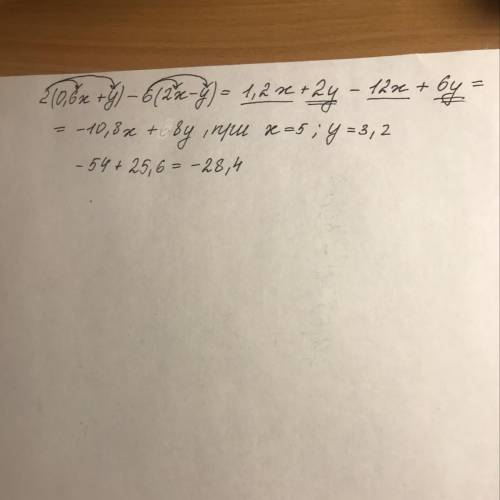 2(0,6x+y)-6(2x-y)=1,2x+2y-12x+6y=
=-10,8x+8y, при x=5; y=3,2
-54+25,6=-28,4